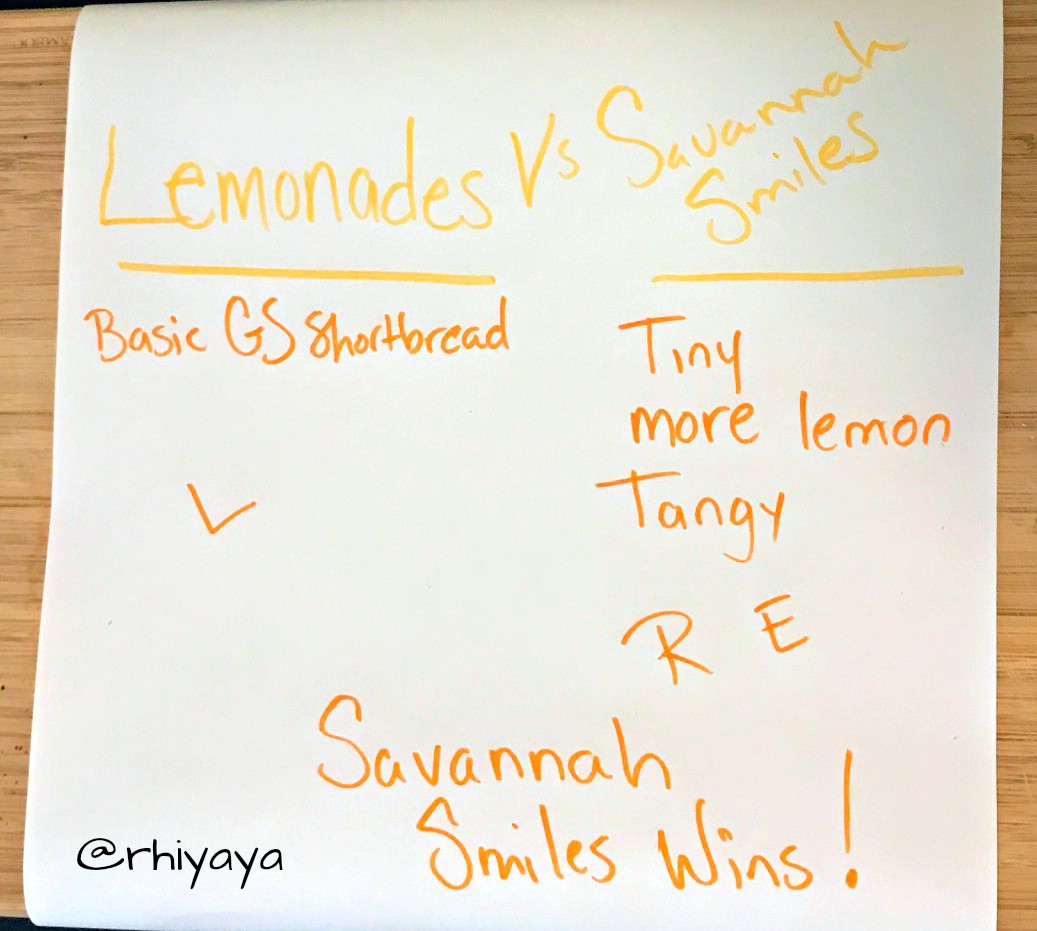 Lemonades Vs Savannah Smiles
Basic GS Shortbread
Tiny
more lemon
Tangy
L
R E
Savannah
Smiles Wins!
@rhiyaya